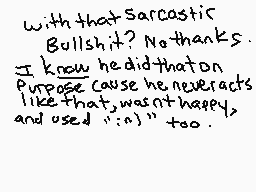 with that sarcastic
Bullshit? No thanks.
I know he did that on
Purpose cause he never acts
like that, wasnt happy,
and used ":n)" too.